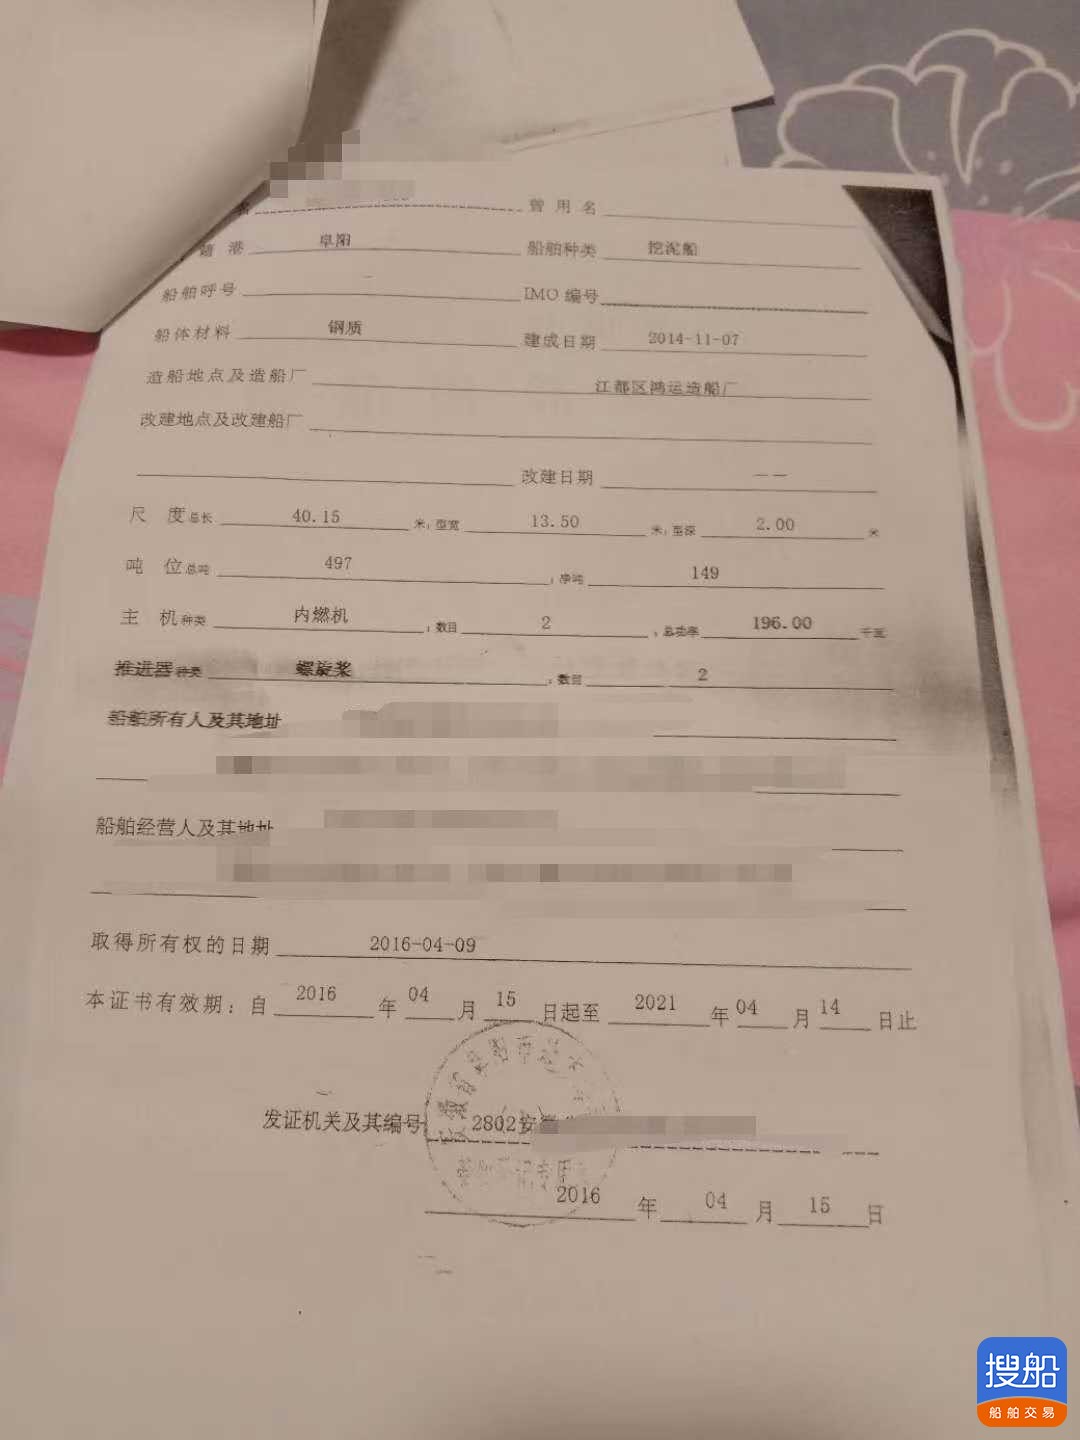 名 曾用名
籍港 阜阳 船舶种类 挖泥船
船舶呼号 IMO 编号
船体材料 钢质 建成日期 2014-11-07
造船地点及造船厂 江都区鸿运造船厂
改建地点及改建船厂
改建日期 — —
尺 度 总长 40.15 米；型宽 13.50 米；型深 2.00 米
吨 位 总吨 497 ；净吨 149
主 机 种类 内燃机 ；数目 2 ；总功率 196.00 千瓦
推进器 种类 螺旋桨 ；数目 2
船舶所有人及其地址
船舶经营人及其地址
取得所有权的日期 2016-04-09
本证书有效期：自 2016 年 04 月 15 日起至 2021 年 04 月 14 日止
发证机关及其编号 2802安
2016 年 04 月 15 日
搜船
船舶交易